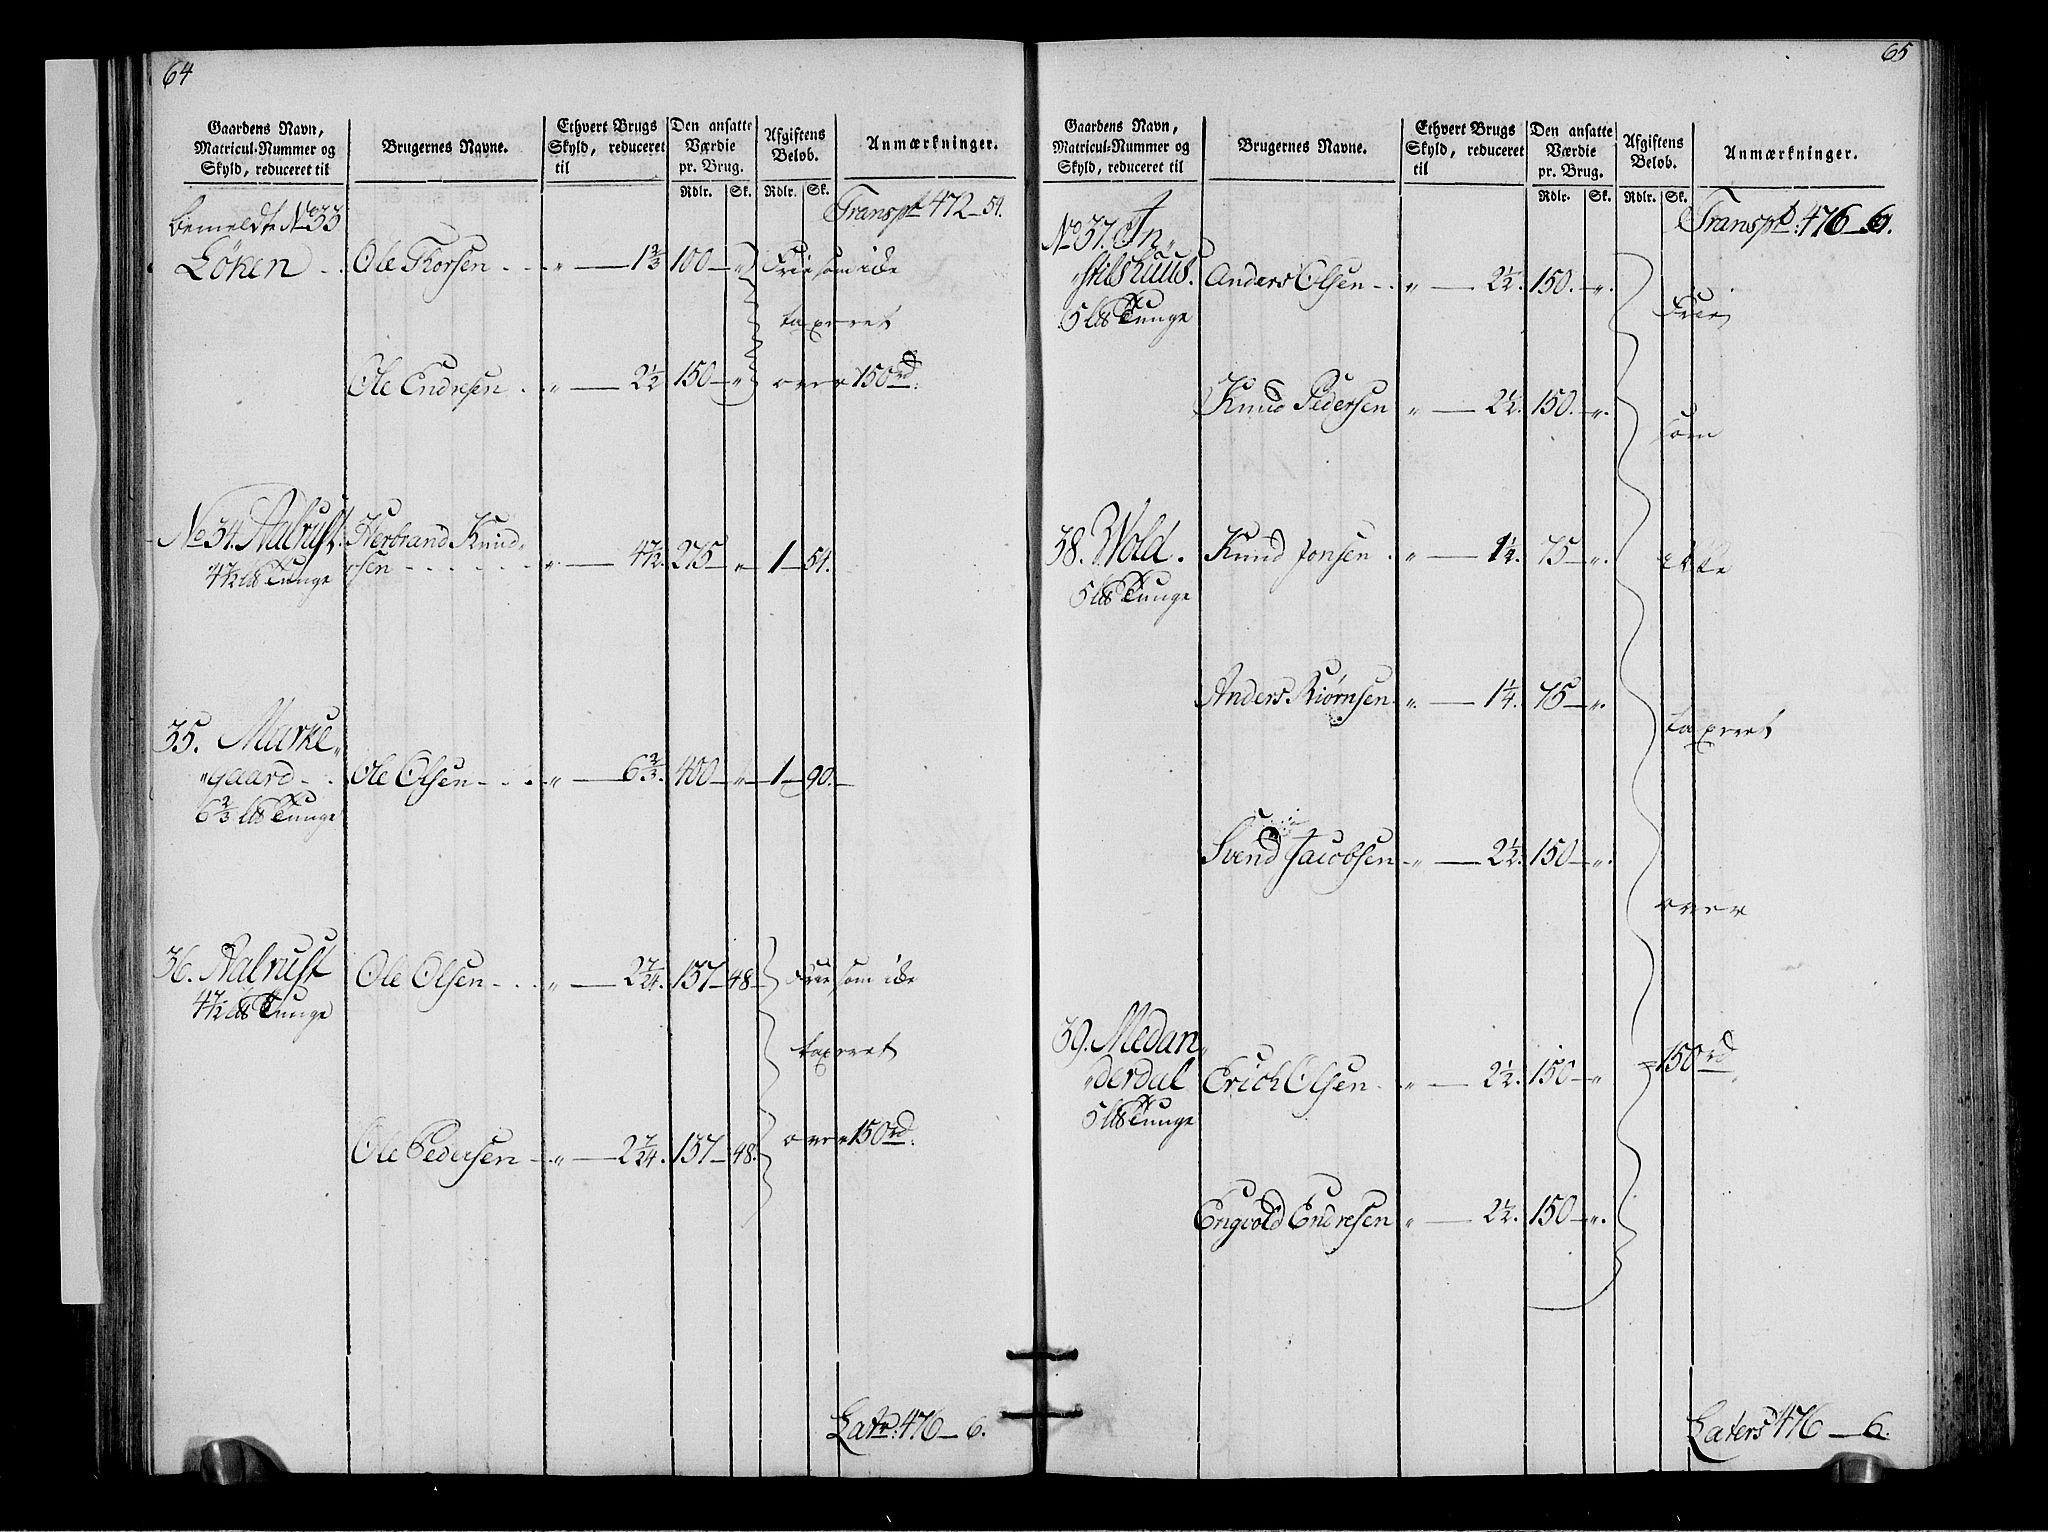 64
Gaardens Navn,
Matricul-Nummer og
Skyld, reduceret til
Brugernes Navne.
Ethvert Brugs
Skyld, reduceret
til
Den ansatte
Værdie
pr. Brug.
Rdlr. Sk.
Afgiftens
Beløb.
Rdlr. Sk.
Anmærkninger.
Transpt 472 - 54.
bemeldte No 33
Løken Ole Thorsen " 1 2/3 100 " Frie som icke
taxeret
Ole Endresen " 2 1/2 150 " over 150 rd.
No 34. Aalrust Herbrand Knud-
4 1/2 lb Tunge sen " 4 1/2. 275 " 1 54.
35. Marke-
gaard Ole Olsen " 6 2/3. 400 " 1 90.
6 2/3 lb Tunge
36. Aalrust Ole Olsen " 2 7/24. 137 48 Frie som icke
4 1/2 lb Tunge
taxeret
Ole Pedersen " 2 7/24. 137 48. over 150 rd.
Latr: 476 - 6.
65
Gaardens Navn,
Matricul-Nummer og
Skyld, reduceret til
Brugernes Navne.
Ethvert Brugs
Skyld, reduceret
til
Den ansatte
Værdie
pr. Brug.
Rdlr. Sk.
Afgiftens
Beløb.
Rdlr. Sk.
Anmærkninger.
Transpt: 476 - 6.
No 37. In-
stilshuus. Anders Olsen " 2 1/2. 150. "
5 lb Tunge Frie
Knud Pedersen " 2 1/2. 150. "
som
38. Wold. Knud Jonsen " 1 1/4. 75 " ikke
5 lb Tunge
Anders Biørnsen " 1 1/4. 75 "
taxeret
Svend Jacobsen " 2 1/2. 150 "
over
39. Medan-
derdal Erich Olsen " 2 1/2. 150 " 150 rd
5 lb Tunge
Engvold Endresen " 2 1/2. 150 "
Laters 476 - 6.